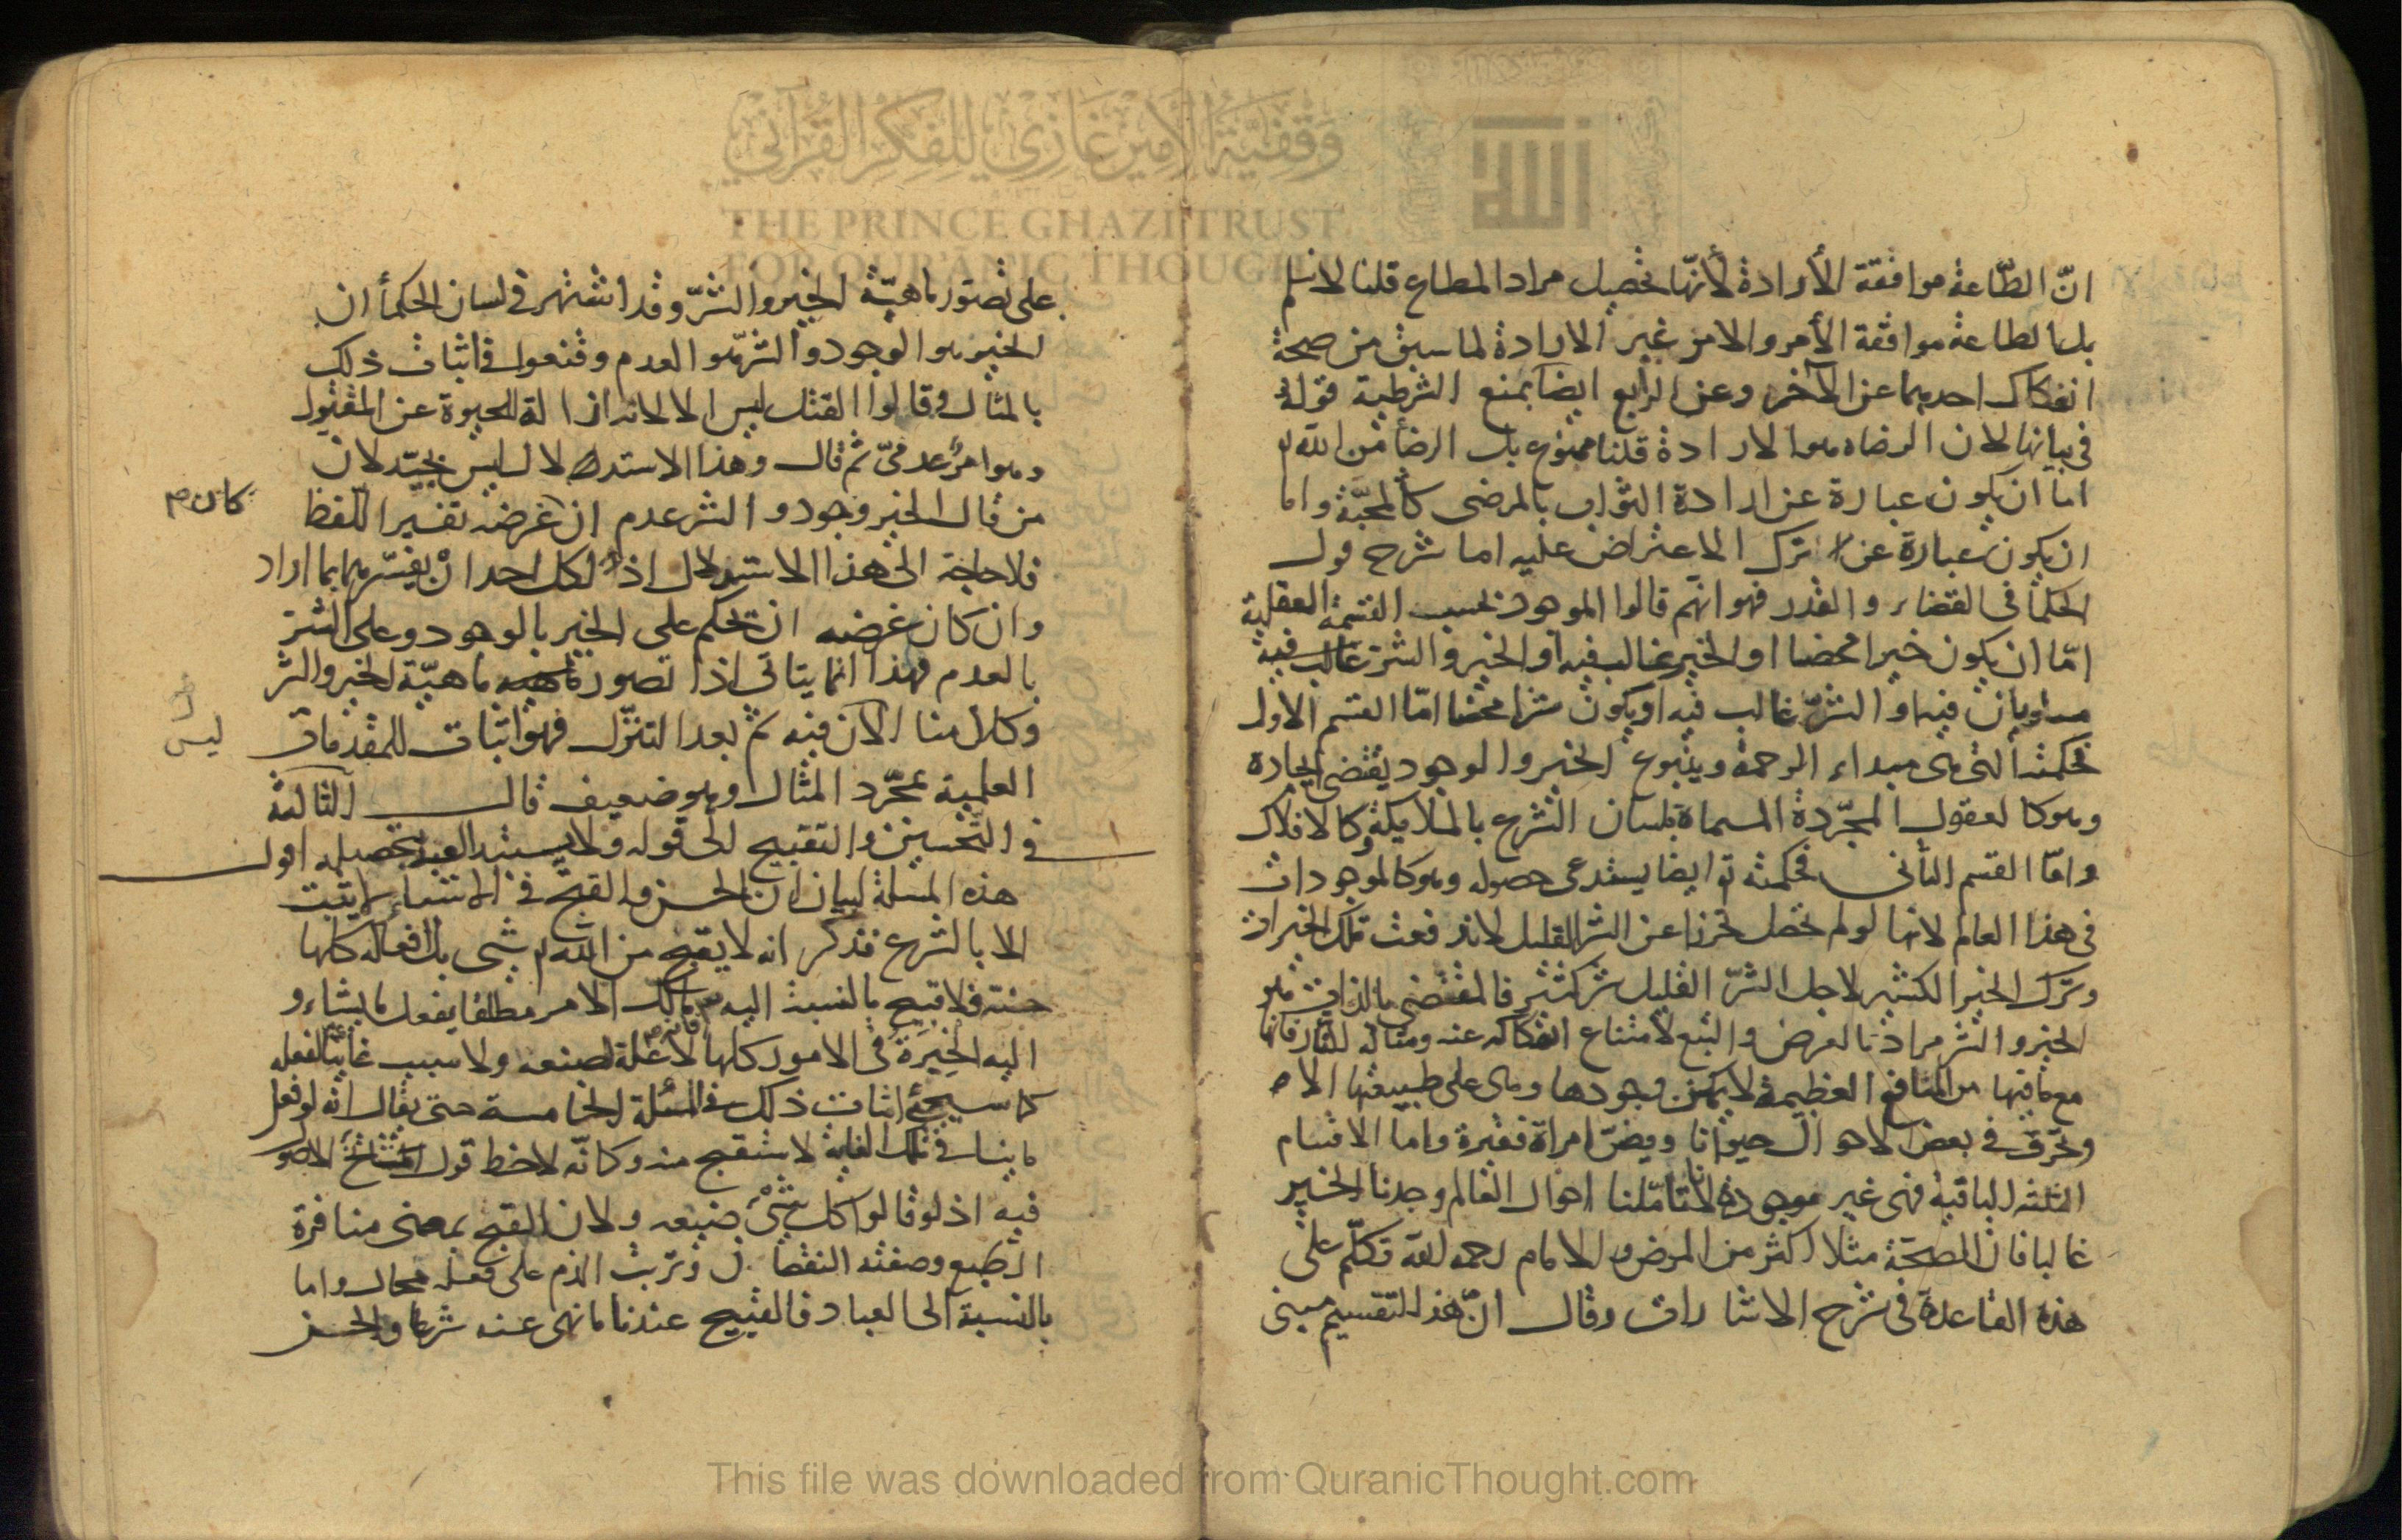 وقفية الأمير غازي للفكر القرآني
THE PRINCE GHAZI TRUST
FOR QUR'ANIC THOUGHT
انّ الطّاعة موافقة الأرادة لأنّها تحصيل مراد المطاع قلنا لا نسلم
بل الطاعة موافقة الأمر والامر غير الارادة لما سبق من صحة
انفكاك احديهما عن الآخر وعن الرابع ايضا بمنع الشرطية قوله
فى بيانها لان الرضاء هو الارادة قلنا ممنوع بل الرضأ من الله
اما ان يكون عبارة عن ارادة الثواب بالمرضى كالمحبّة واما
ان يكون عبارة عن ترك الاعتراض عليه اما شرح قول
الحكمأ فى القضاء والقدر فهو انهم قالوا الموجود بحسب القسمة العقلية
امّا ان يكون خيرا محضا او الخير غالب فيه او الخير والشر غالب فيه
مساويان فيه او الشرّ غالب فيه او يكون شرا محضا امّا القسم الاول
فحكمته التى هى مبداء الرحمة وينبوع الخير والوجود يقتضى ايجاده
وهو كالعقول المجرّدة المسماة بلسان الشرع بالملايكة وكالافلاك
وامّا القسم الثانى فحكمته ايضا يستدعى حصوله وهو كالموجودات
فى هذا العالم لانها لو لم تحصل تحرزا عن الشر القليل لاندفعت تلك الخيرات
وترك الخير الكثير لاجل الشرّ القليل شر كثير فالمقتضى بالذات هو
الخير والشر مراد بالعرض والتبع لامتناع انفكاكه عنه ومثاله النار فانها
مع ما فيها من المنافع العظيمة لا يمكن وجودها وهى على طبيعتها الا
وتحرق فى بعض الاحوال حيوانا ويضرّ امراة فقيرة واما الاقسام
الثلثة الباقية فهى غير موجودة لانا تامّلنا احوال العالم وجدنا الخير
غالبا فان الصحّة مثلا اكثر من المرض والامام رحمه الله تكلّم على
هذه القاعدة فى شرح الاشارات وقال انّ هذا التقسيم مبنى
على تصور ماهيّة الخير والشرّ وقد اشتهر فى لسان الحكمأ ان
الخير هو الوجود والشرّ هو العدم وقنعوا فى اثبات ذلك
بالمثال وقالوا القتل ليس الا لانه ازالة الحيوة عن المقتول
وهو امر عدمىّ ثم قال وهذا الاستدلال ليس بجيّد لان
من قال الخير وجود والشر عدم ان غرضه تفسير اللّفظ
كان
فلا حاجة الى هذا الاستدلال اذ لكل احد انْ يفسّرهما بما اراد
وان كان غرضه ان تحكم على الخير بالوجود وعلى الشرّ
بالعدم فهذا انما يتاتى اذا تصور ماهيّة الخير والشر
وكلامنا الآن فيه ثم بعد التنزّل فهو اثبات للمقدمات
ليس
العلمية بمجّرد المثال وهو ضعيف قال الثالثة
فى التّحسين والتقبيح الى قوله ولا يستبد العبد بتحصيله اقول
هذه المسئلة لبيان ان الحسن والقبح فى الاشياء لا يثبت
الا بالشرع فذكر انه لا يقبح من الله شى بل افعاله كلها
حسنة فلا قبيح بالنسبة اليه مالك الامر مطلقا يفعل ما يشاء و
اليه الخِيَرَةَ فى الامور كلها لا علة لصنعه ولا سبب غائيّا لفعله
كما سيجئ اثبات ذلك فى المسئلة الخامسة حتى يقال انه لو فعل
ما ينافى تلك الغاية لاستقبح منه وكانّه لاحظ قول المشائخ
فيه اذ لو قالوا كل شئ صنيعه ولان القبح بمعنى منافرة
الطبع وصفة النقصان وترتب الذم على فعله محال واما
بالنسبة الى العباد فالقبيح عندنا ما نهى عنه شرعا والحسن
This file was downloaded from QuranicThought.com